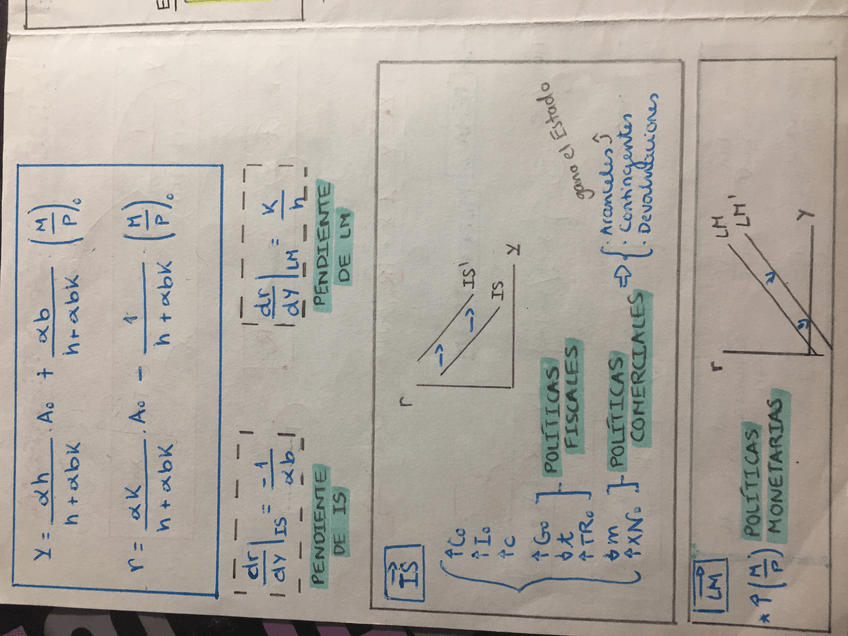 E
Y = αh / h + αbK · A₀ + αb / h + αbK · (M/P)₀
r = αK / h + αbK · A₀ - 1 / h + αbK · (M/P)₀
dr/dY |IS = -1/αb
PENDIENTE
DE IS
dr/dY |LM = K/h
PENDIENTE
DE LM
→IS
↑C₀
↑I₀
↑c
↑G₀
↓t
↑TR₀
POLÍTICAS
FISCALES
↓m
↑XN₀
POLÍTICAS
COMERCIALES
⇒ { · Aranceles
· Contingentes
· Devaluaciones
gana el Estado
r
IS'
IS
Y
→LM
* ↑(M/P)
POLÍTICAS
MONETARIAS
r
LM
LM'
Y